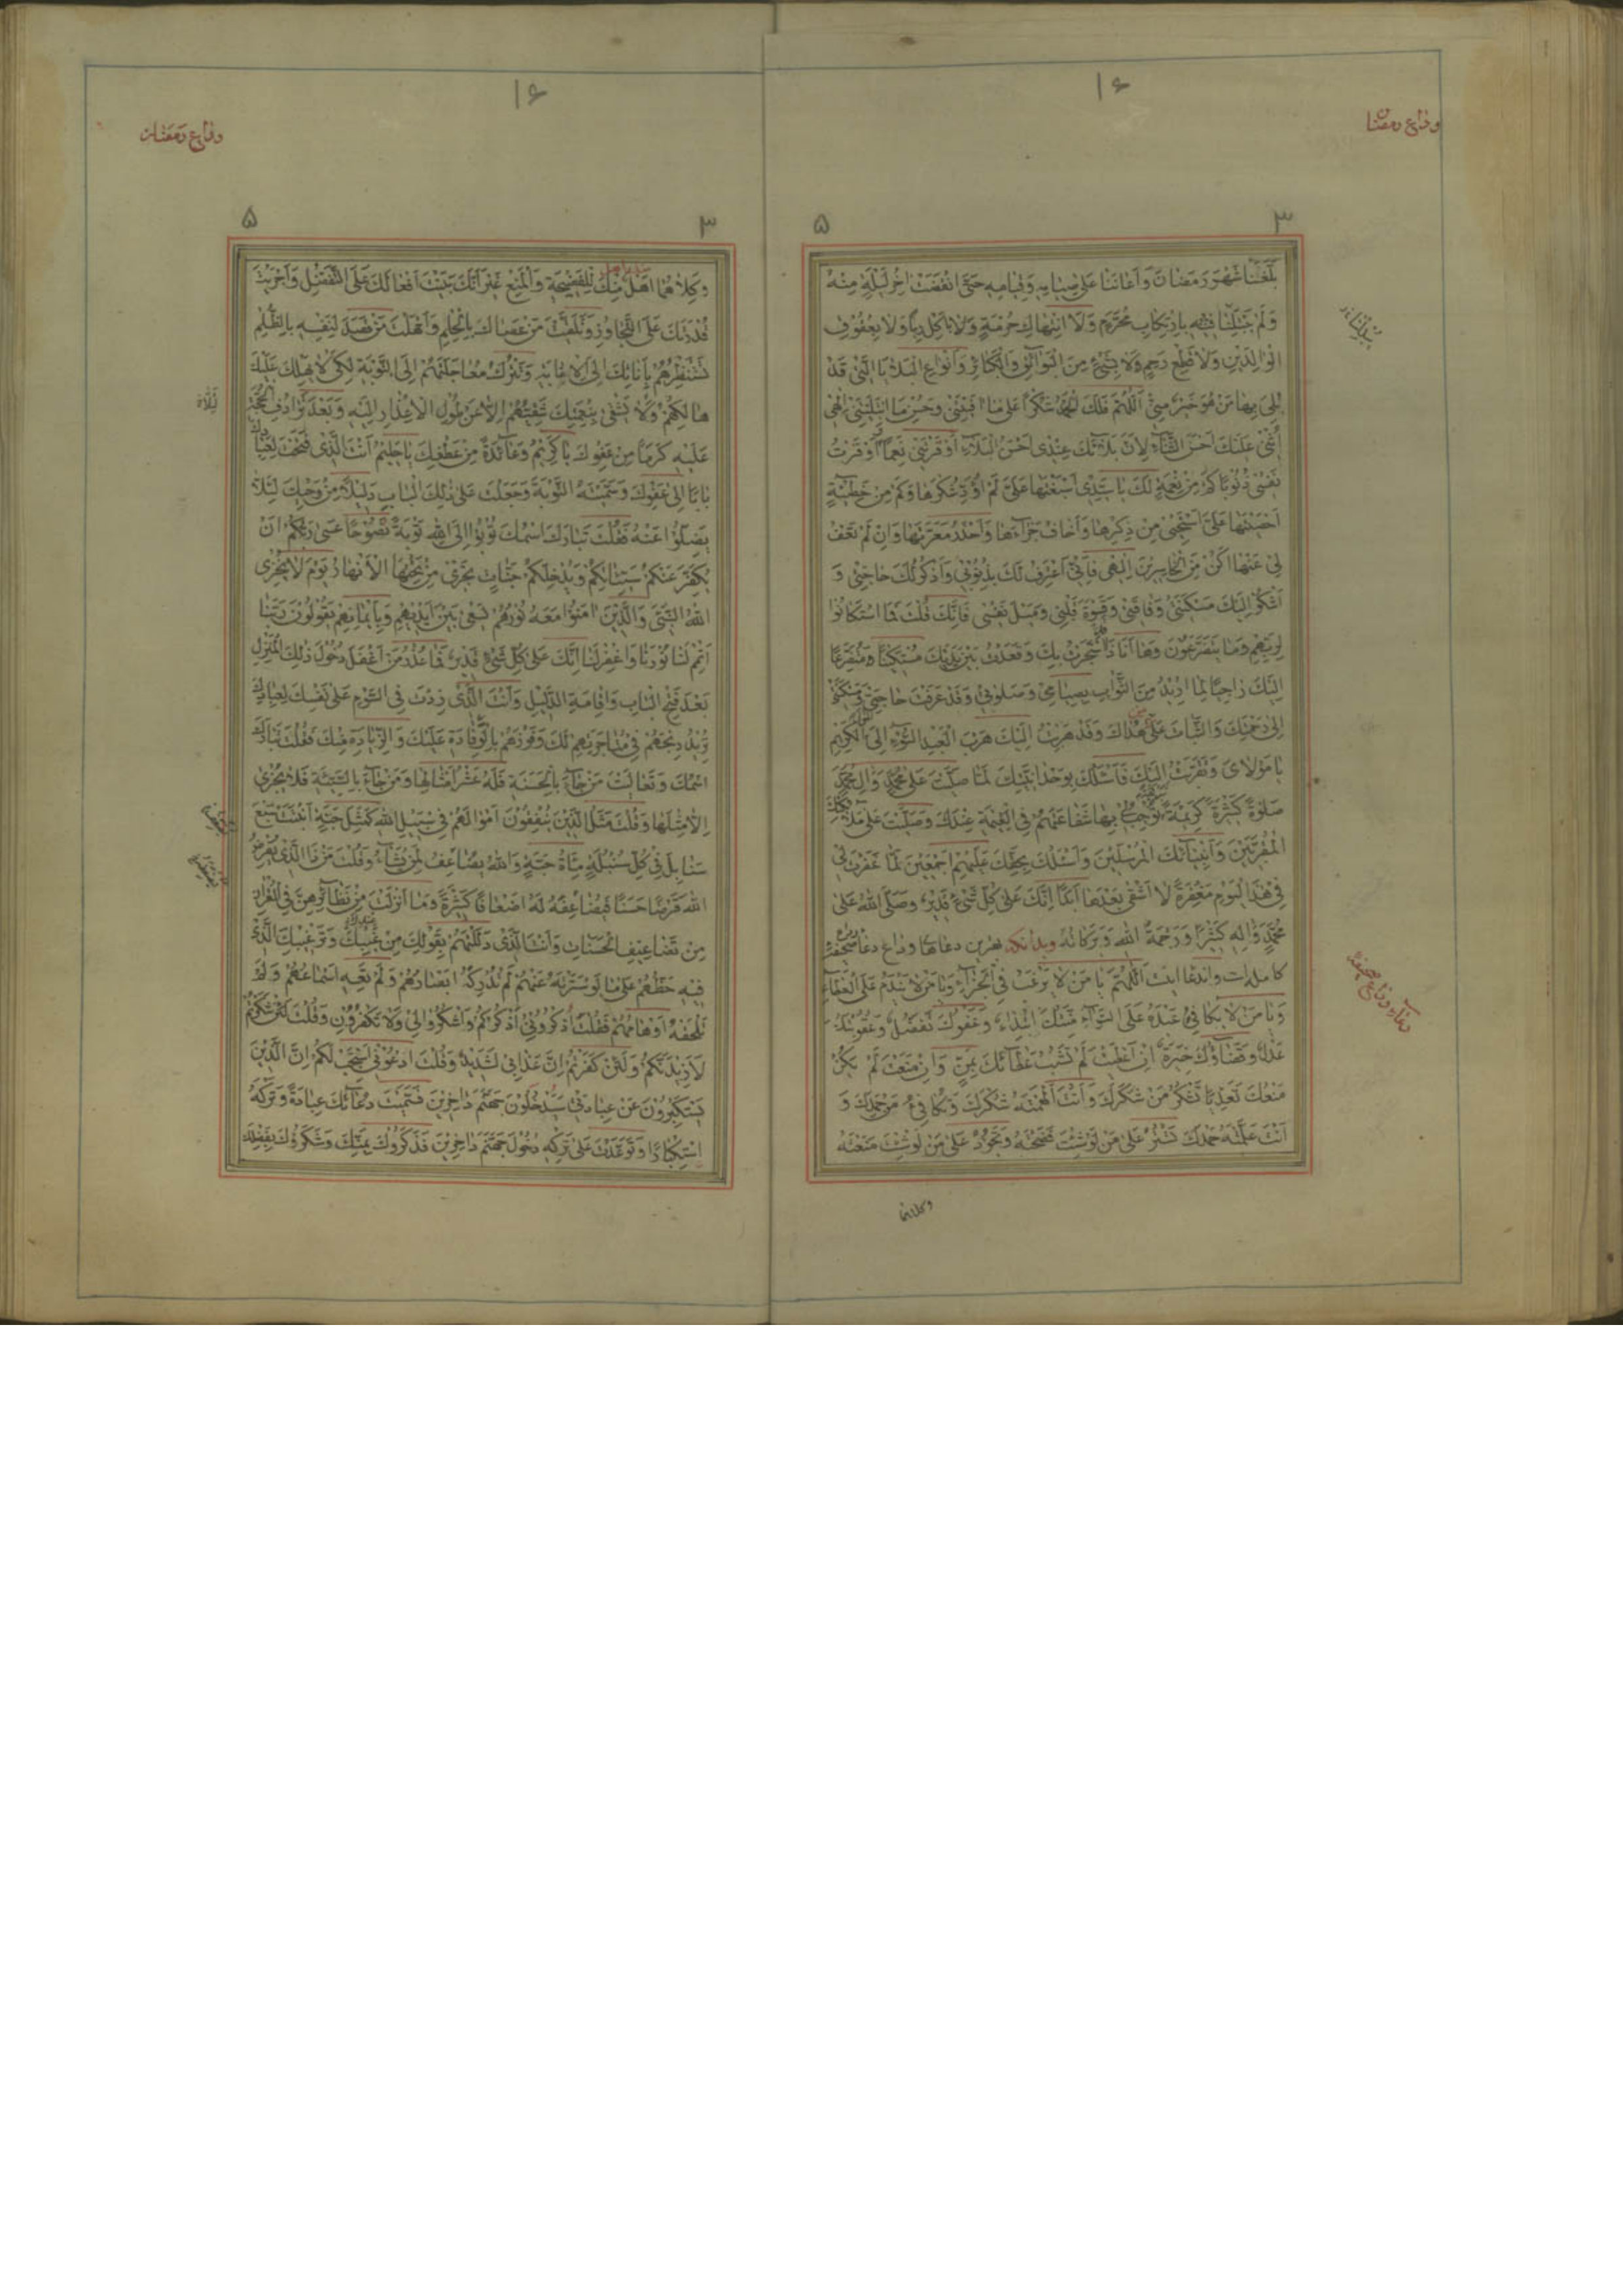 ۱۶
وداع رمضان
۳ ۵
بَلَّغَنا شَهْرَ رَمَضانَ وَاَعانَنا عَلى صِيامِهِ وَقِيامِهِ حَتَّى انْقَضَتْ اخِرُ لَيْلَةٍ مِنْهُ
وَلَمْ يَبْتَلِنا فيهِ بِارْتِكابِ مُحَرَّمٍ وَلَا انْتِهاكِ حُرْمَةٍ وَلا بِاَكْلِ رِباً وَلا بِعُقُوقِ
الْوالِدَيْنِ وَلا قَطْعِ رَحِمٍ وَلا بِشَيْءٍ مِنَ الْبَوائِقِ وَالْكَبائِرِ وَاَنْواعِ الْبَلايَا الَّتي قَدْ
بُلِيَ بِها مَنْ هُوَ خَيْرٌ مِنّي اَللّهُمَّ فَلَكَ الْحَمْدُ شُكْراً عَلى ما عافَيْتَني وَحُسْنِ مَا ابْتَلَيْتَني اِلهي
اُثْني عَلَيْكَ اَحْسَنَ الثَّناءِ لِاَنَّ بَلاءَكَ عِنْدي اَحْسَنُ الْبَلاءِ اَوْقَرْتَني نِعَماً وَاَوْقَرْتُ
نَفْسي ذُنُوباً كَمْ مِنْ نِعْمَةٍ لَكَ يا سَيِّدي اَسْبَغْتَها عَلَيَّ لَمْ اُؤَدِّ شُكْرَها وَكَمْ مِنْ خَطيئَةٍ
اَحْصَيْتَها عَلَيَّ اَسْتَحْيي مِنْ ذِكْرِها وَاَخافُ جَزاءَها وَاَحْذَرُ مَعَرَّتَها وَاِنْ لَمْ تَعْفُ
لي عَنْها اَكُنْ مِنَ الْخاسِرينَ اِلهي فَاِنّي اَعْتَرِفُ لَكَ بِذُنُوبي وَاَذْكُرُ لَكَ حاجَتي وَ
اَشْكُو اِلَيْكَ مَسْكَنَتي وَفاقَتي وَقَسْوَةَ قَلْبي وَمَيْلَ نَفْسي فَاِنَّكَ قُلْتَ فَمَا اسْتَكانُوا
لِرَبِّهِمْ وَما يَتَضَرَّعُونَ وَها اَنَا ذَا قَدِ اسْتَجَرْتُ بِكَ وَقَعَدْتُ بَيْنَ يَدَيْكَ مُسْتَكيناً مُتَضَرِّعاً
اِلَيْكَ راجِياً لِما اُريدُ مِنَ الثَّوابِ بِصِيامي وَصَلوتي وَقَدْ عَرَفْتَ حاجَتي وَمَسْكَنَتي
اِلى رَحْمَتِكَ وَالثَّباتَ عَلى هُداكَ وَقَدْ هَرَبْتُ اِلَيْكَ هَرَبَ الْعَبْدِ السُّوءِ اِلَى الْمَوْلَى الْكَريمِ
يا مَوْلايَ وَتَقَرَّبْتُ اِلَيْكَ فَاَسْئَلُكَ بِوَحْدانِيَّتِكَ لَمّا صَلَّيْتَ عَلى مُحَمَّدٍ وَالِ مُحَمَّدٍ
صَلوةً كَثيرَةً كَريمَةً شَريفَةً تُوجِبُ بِها شَفاعَتَهُمْ فِي الْقِيمَةِ عِنْدَكَ وَصَلَّيْتَ عَلى مَلائِكَتِكَ
الْمُقَرَّبينَ وَاَنْبِيائِكَ الْمُرْسَلينَ وَاَسْئَلُكَ بِحَقِّكَ عَلَيْهِمْ اَجْمَعينَ لَمّا غَفَرْتَ لي
في هذَا الْيَوْمِ مَغْفِرَةً لا اَشْقى بَعْدَها اَبَداً اِنَّكَ عَلى كُلِّ شَيْءٍ قَديرٌ وَصَلَّى اللهُ عَلى
مُحَمَّدٍ وَالِهِ كَثيراً وَرَحْمَةُ اللهِ وَبَرَكاتُهُ وبدانكه بهترين دعاها وداع دعا صحيفه
كامله است وان دعا اينست اَللّهُمَّ يا مَنْ لا يَرْغَبُ فِي الْجَزاءِ وَيا مَنْ لا يَنْدَمُ عَلَى الْعَطاءِ
وَيا مَنْ لا يُكافِئُ عَبْدَهُ عَلَى السَّواءِ مِنَّتُكَ ابْتِداءٌ وَعَفْوُكَ تَفَضُّلٌ وَعُقُوبَتُكَ
عَدْلٌ وَقَضاؤُكَ خِيَرَةٌ اِنْ اَعْطَيْتَ لَمْ تَشُبْ عَطاءَكَ بِمَنٍّ وَاِنْ مَنَعْتَ لَمْ يَكُنْ
مَنْعُكَ تَعَدِّياً تَشْكُرُ مَنْ شَكَرَكَ وَاَنْتَ اَلْهَمْتَهُ شُكْرَكَ وَتُكافِئُ مَنْ حَمِدَكَ وَ
اَنْتَ عَلَّمْتَهُ حَمْدَكَ تَسْتُرُ عَلى مَنْ لَوْ شِئْتَ فَضَحْتَهُ وَتَجُودُ عَلى مَنْ لَوْ شِئْتَ مَنَعْتَهُ
وكلاهما
دعاء وداع صحيفه
۱۶
وداع رمضان
۳ ۵
وَكِلاهُما اَهْلٌ مِنْكَ لِلْفَضيحَةِ وَالْمَنْعِ غَيْرَ اَنَّكَ بَنَيْتَ اَفْعالَكَ عَلَى التَّفَضُّلِ وَاَجْرَيْتَ
قُدْرَتَكَ عَلَى التَّجاوُزِ وَتَلَقَّيْتَ مَنْ عَصاكَ بِالْحِلْمِ وَاَمْهَلْتَ مَنْ قَصَدَ لِنَفْسِهِ بِالظُّلْمِ
تَسْتَنْظِرُهُمْ بِاَناتِكَ اِلَى الْاِنابَةِ وَتَتْرُكُ مُعاجَلَتَهُمْ اِلَى التَّوْبَةِ لِكَيْ لا يَهْلِكَ عَلَيْكَ
هالِكُهُمْ وَلا يَشْقى بِنِعْمَتِكَ شَقِيُّهُمْ اِلّا عَنْ طُولِ الْاِعْذارِ اِلَيْهِ وَبَعْدَ تَرادُفِ الْحُجَّةِ
عَلَيْهِ كَرَماً مِنْ عَفْوِكَ يا كَريمُ وَعائِدَةً مِنْ عَطْفِكَ يا حَليمُ اَنْتَ الَّذي فَتَحْتَ لِعِبادِكَ
باباً اِلى عَفْوِكَ وَسَمَّيْتَهُ التَّوْبَةَ وَجَعَلْتَ عَلى ذلِكَ الْبابِ دَليلاً مِنْ وَحْيِكَ لِئَلّا
يَضِلُّوا عَنْهُ فَقُلْتَ تَبارَكَ اسْمُكَ تُوبُوا اِلَى اللهِ تَوْبَةً نَصُوحاً عَسى رَبُّكُمْ اَنْ
يُكَفِّرَ عَنْكُمْ سَيِّئاتِكُمْ وَيُدْخِلَكُمْ جَنّاتٍ تَجْري مِنْ تَحْتِهَا الْاَنْهارُ يَوْمَ لا يُخْزِي
اللهُ النَّبِيَّ وَالَّذينَ امَنُوا مَعَهُ نُورُهُمْ يَسْعى بَيْنَ اَيْديهِمْ وَبِاَيْمانِهِمْ يَقُولُونَ رَبَّنا
اَتْمِمْ لَنا نُورَنا وَاغْفِرْ لَنا اِنَّكَ عَلى كُلِّ شَيْءٍ قَديرٌ فَما عُذْرُ مَنْ اَغْفَلَ دُخُولَ ذلِكَ الْمَنْزِلِ
بَعْدَ فَتْحِ الْبابِ وَاِقامَةِ الدَّليلِ وَاَنْتَ الَّذي زِدْتَ فِي السَّوْمِ عَلى نَفْسِكَ لِعِبادِكَ
تُريدُ رِبْحَهُمْ في مُتاجَرَتِهِمْ لَكَ وَفَوْزَهُمْ بِالْوِفادَةِ عَلَيْكَ وَالزِّيادَةِ مِنْكَ فَقُلْتَ تَبارَكَ
اسْمُكَ وَتَعالَيْتَ مَنْ جاءَ بِالْحَسَنَةِ فَلَهُ عَشْرُ اَمْثالِها وَمَنْ جاءَ بِالسَّيِّئَةِ فَلا يُجْزى
اِلّا مِثْلَها وَقُلْتَ مَثَلُ الَّذينَ يُنْفِقُونَ اَمْوالَهُمْ في سَبيلِ اللهِ كَمَثَلِ حَبَّةٍ اَنْبَتَتْ سَبْعَ
سَنابِلَ في كُلِّ سُنْبُلَةٍ مِائَةُ حَبَّةٍ وَاللهُ يُضاعِفُ لِمَنْ يَشاءُ وَقُلْتَ مَنْ ذَا الَّذي يُقْرِضُ
اللهَ قَرْضاً حَسَناً فَيُضاعِفَهُ لَهُ اَضْعافاً كَثيرَةً وَما اَنْزَلْتَ مِنْ نَظائِرِهِنَّ فِي الْقُرْانِ
مِنْ تَضاعيفِ الْحَسَناتِ وَاَنْتَ الَّذي دَلَلْتَهُمْ بِقَوْلِكَ مِنْ غَيْبِكَ وَتَرْغيبِكَ الَّذي
فيهِ حَظُّهُمْ عَلى ما لَوْ سَتَرْتَهُ عَنْهُمْ لَمْ تُدْرِكْهُ اَبْصارُهُمْ وَلَمْ تَعِهِ اَسْماعُهُمْ وَلَمْ
تَلْحَقْهُ اَوْهامُهُمْ فَقُلْتَ اذْكُرُوني اَذْكُرْكُمْ وَاشْكُرُوا لي وَلا تَكْفُرُونِ وَقُلْتَ لَئِنْ شَكَرْتُمْ
لَاَزيدَنَّكُمْ وَلَئِنْ كَفَرْتُمْ اِنَّ عَذابي لَشَديدٌ وَقُلْتَ ادْعُوني اَسْتَجِبْ لَكُمْ اِنَّ الَّذينَ
يَسْتَكْبِرُونَ عَنْ عِبادَتي سَيَدْخُلُونَ جَهَنَّمَ داخِرينَ فَسَمَّيْتَ دُعاءَكَ عِبادَةً وَتَرْكَهُ
اسْتِكْباراً وَتَوَعَّدْتَ عَلى تَرْكِهِ دُخُولَ جَهَنَّمَ داخِرينَ فَذَكَرُوكَ بِمَنِّكَ وَشَكَرُوكَ بِفَضْلِكَ